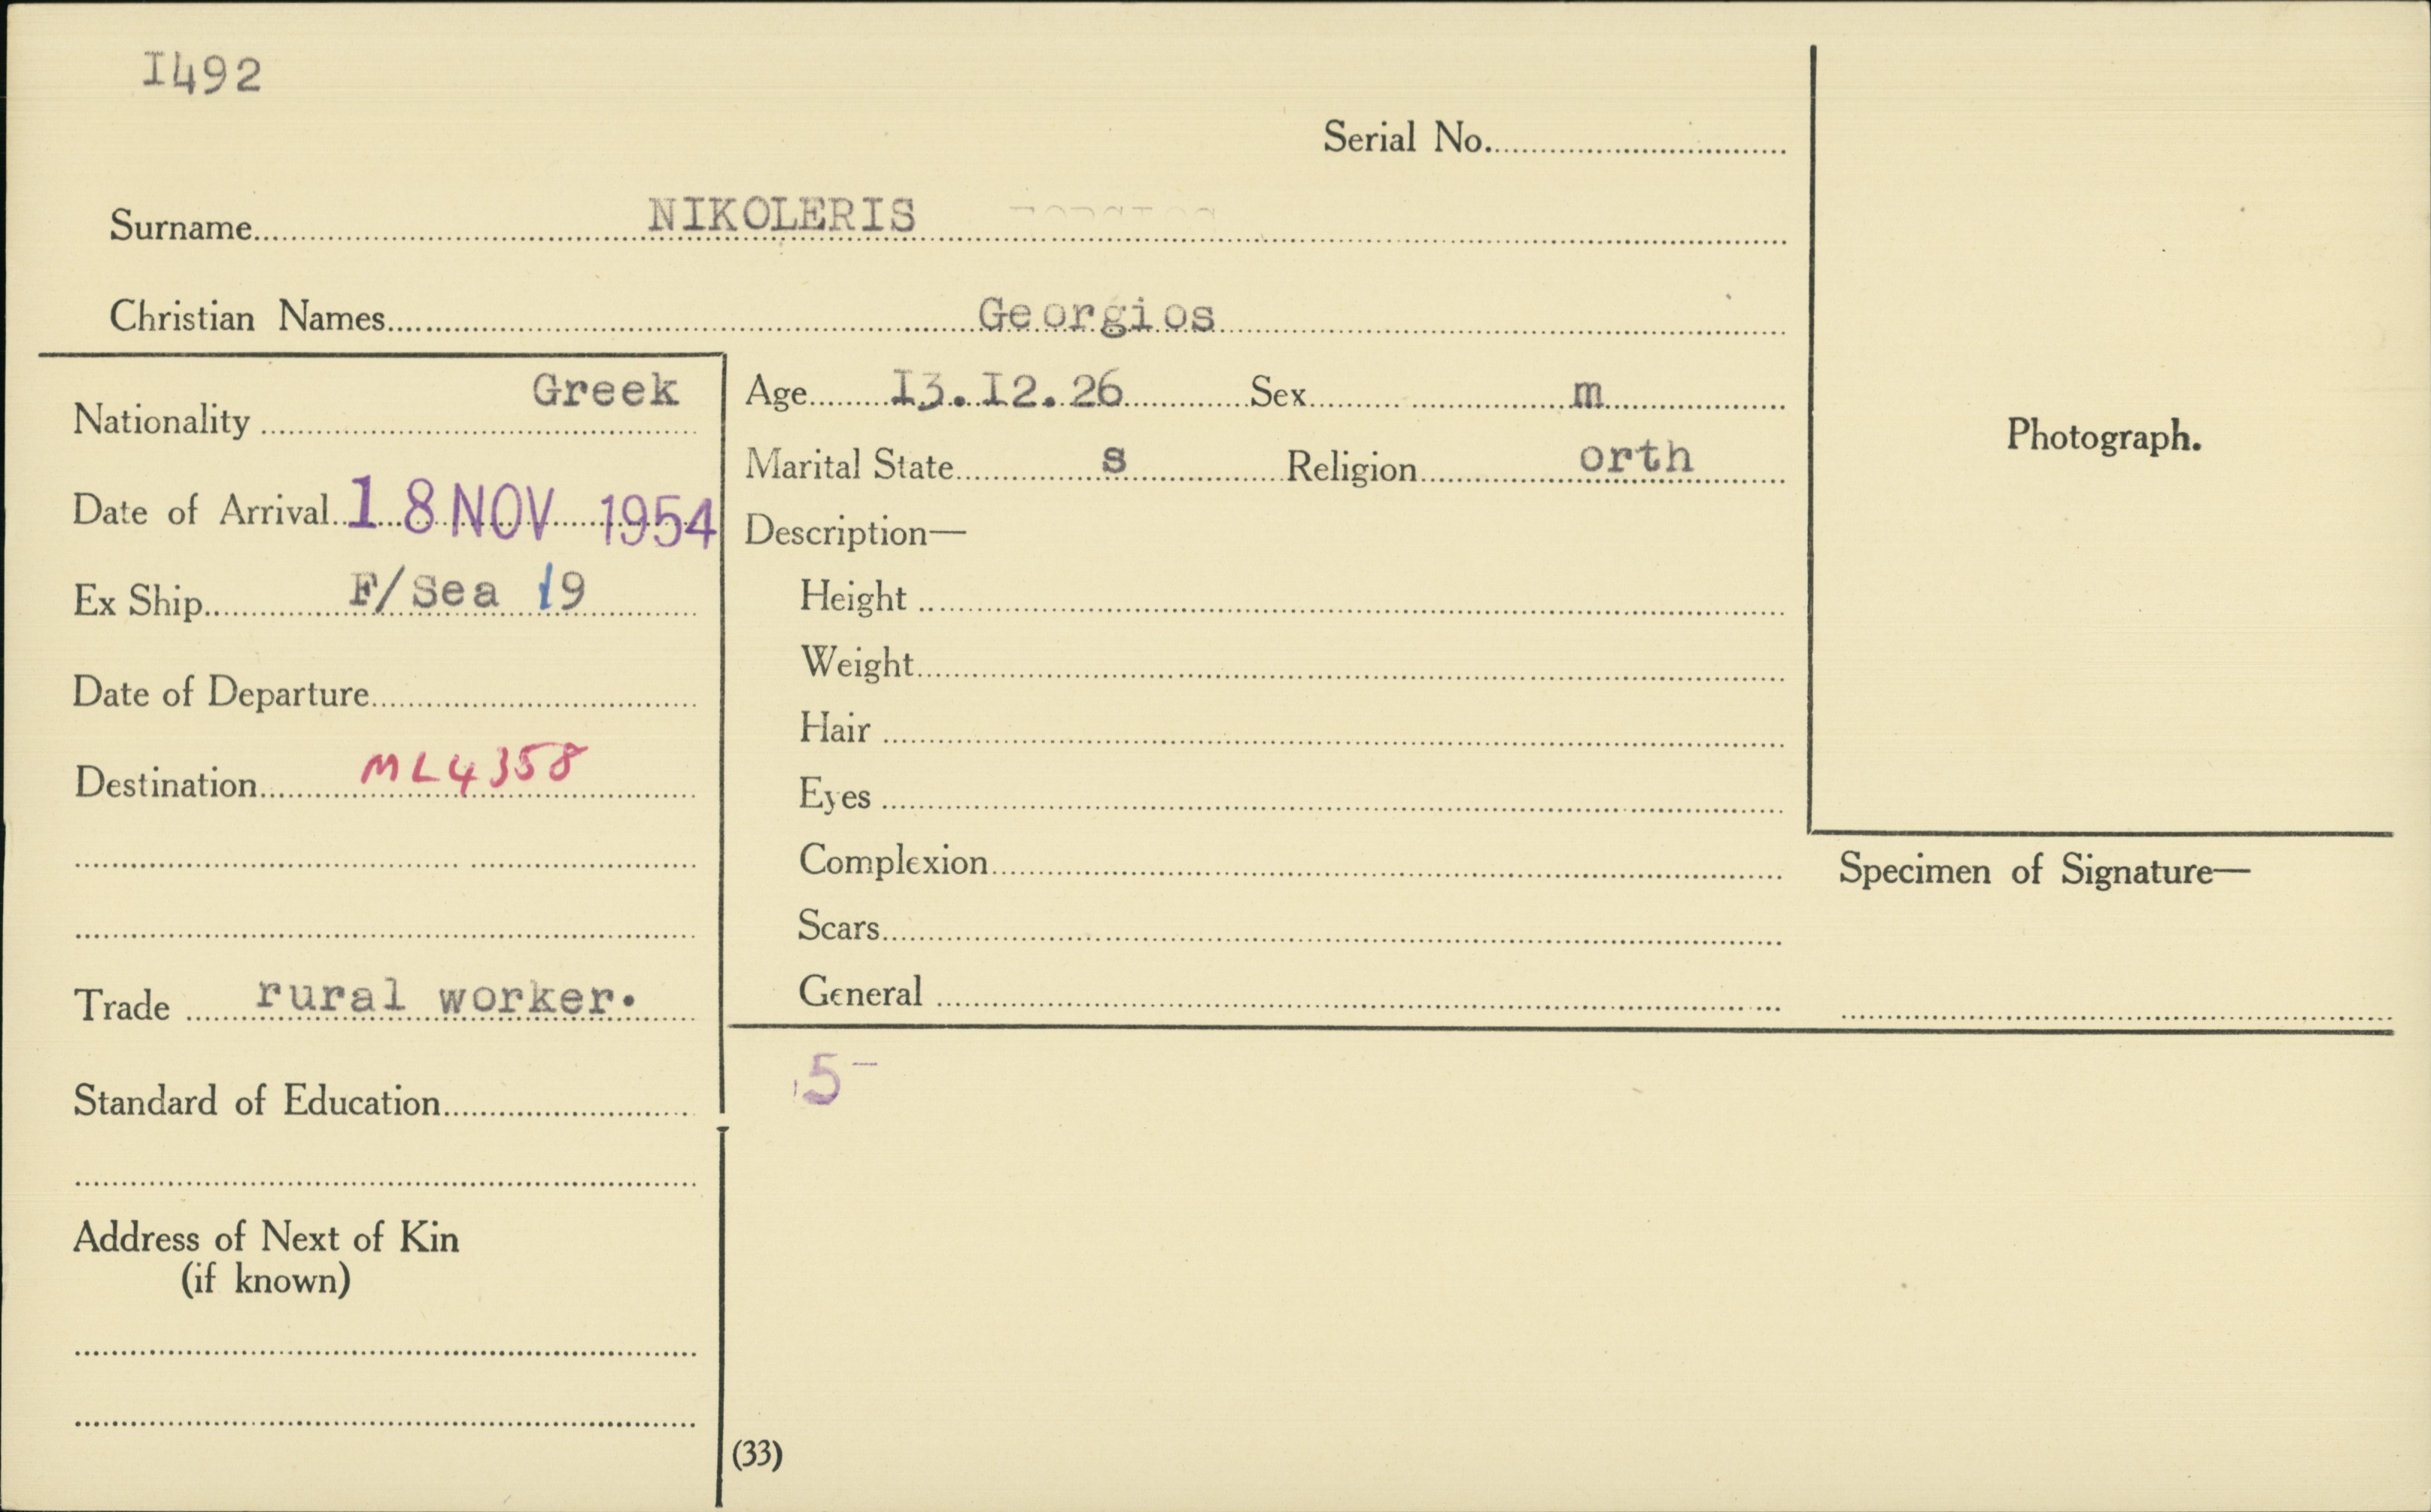 I492
Serial No.
Surname NIKOLERIS
Christian Names Georgios
Nationality Greek
Date of Arrival 18 NOV 1954
Ex Ship F/Sea 19
Date of Departure
Destination ML4358
Trade rural worker.
Standard of Education
Address of Next of Kin
(if known)
Age I3.I2.26 Sex m
Marital State s Religion orth
Description—
Height
Weight
Hair
Eyes
Complexion
Scars
General
Photograph.
Specimen of Signature—
5
(33)